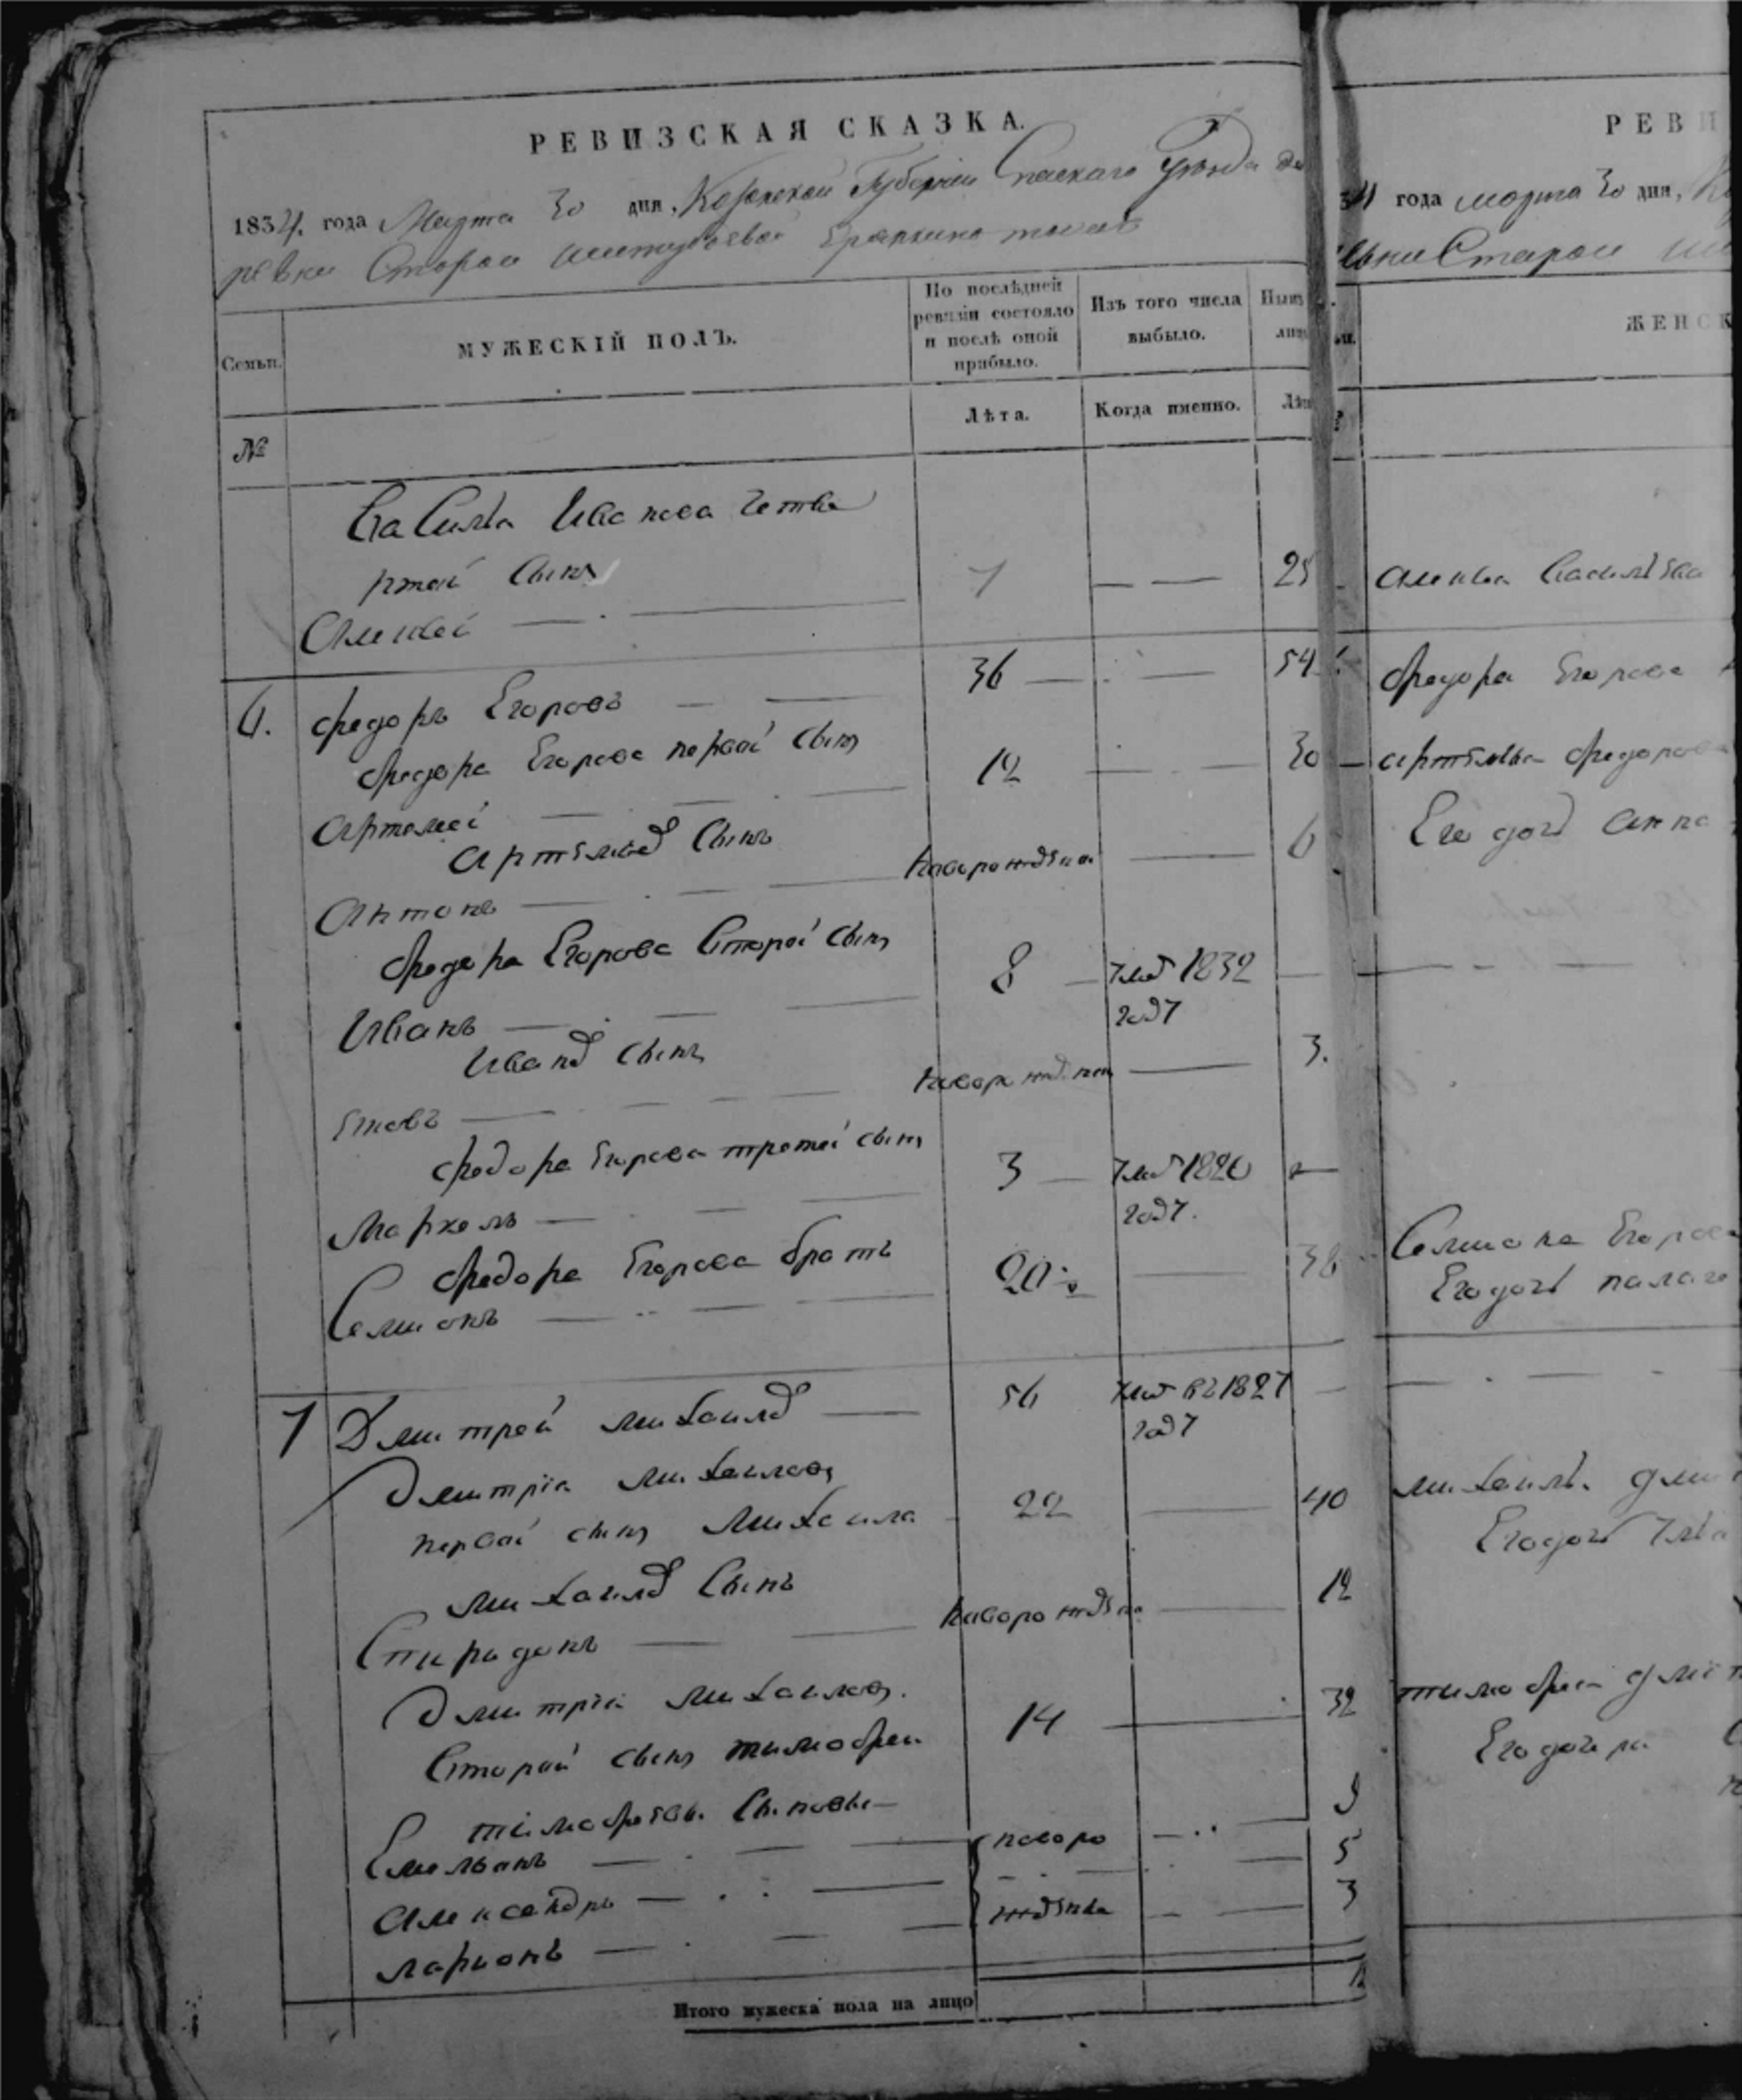 РЕВИЗСКАЯ СКАЗКА.
1834. года Марта 30 дня, Казанской Губернии Спаскаго Уезда де
ревни Старой
Семьи.
МУЖЕСКІЙ ПОЛЪ.
По послѣдней ревизіи состояло и послѣ оной прибыло.
Изъ того числа выбыло.
Нынѣ
лиц
№
Лѣта.
Когда именно.
Лѣт
Василья Иванова четве
ртой сынъ
Алексей 7 25
6. Федоръ Егоровъ 36 54
Федора Егорова первой сынъ
Артемей 12 30
Артемьева сынъ
Антонъ новорожденъ 6
Федора Егорова второй сынъ
Иванъ 8 умер 1832
году
Ивана сынъ
новорожден 3.
Федора Егорова третей сынъ
Маркелъ 3 умер 1826
году.
Федора Егорова братъ
Семионъ 20 38
7 Дмитрей Михаилов 56 умер въ 1827
году
Дмитрія Михаилова
первой сынъ Михаила 22 40
Михаилов сынъ
Спиридонъ новорожден 12
Дмитрія Михаилова
второй сынъ Тимофеи 14 32
Тимофеевы сыновья
Емельянъ новоро 9
Александръ 5
Ларионъ ждены 3
Итого мужеска пола на лицо
РЕВИ
34 года марта 30 дня,
Старой
ЖЕНСК
Алексея Васильева
Федора Егорова
Артемья Федорова
Его доч Анна
Семиона Егорова
Его доч Палаге
Михаилъ Дми
Его доч
Тимофея Дмит
Его дочери